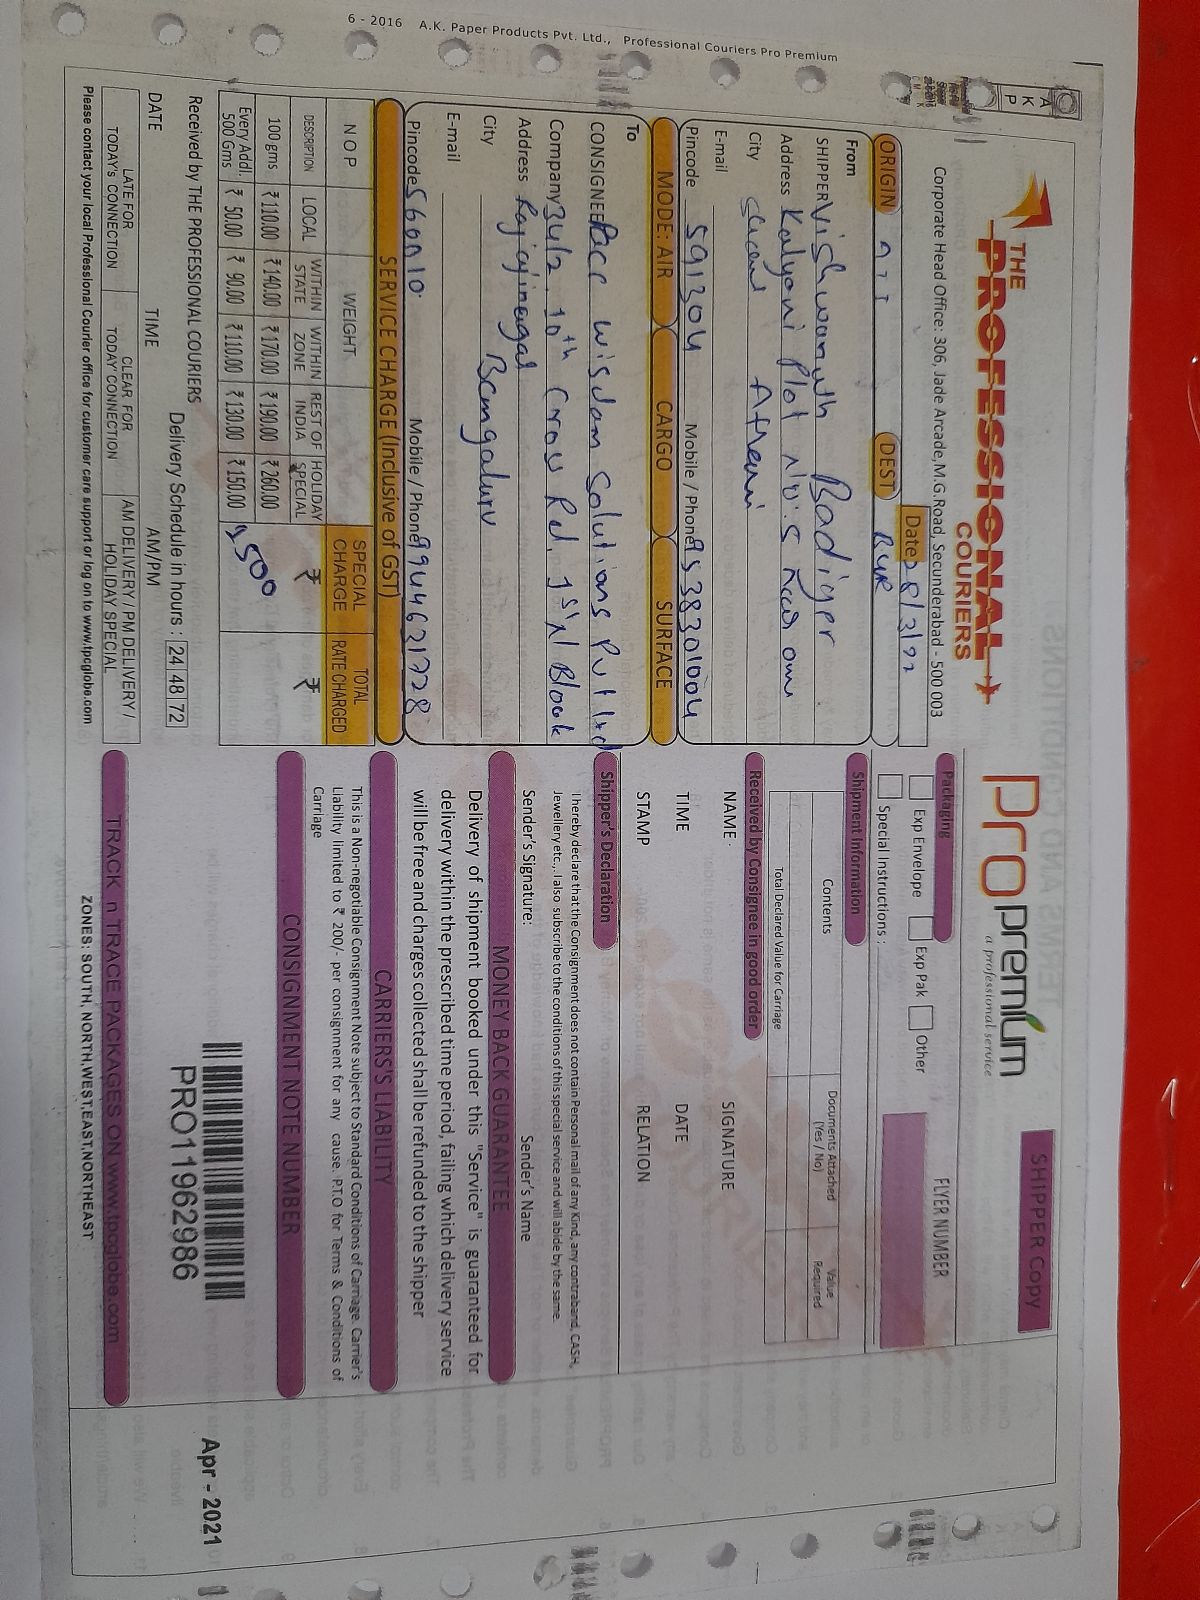 6 - 2016 A.K. Paper Products Pvt. Ltd., Professional Couriers Pro Premium
A K P
THE
PROFESSIONAL
COURIERS
Corporate Head Office: 306, Jade Arcade,M.G.Road, Secunderabad - 500 003
Date 28/3/22
ORIGIN
DEST
From
SHIPPER Vishwanath Badiger
Address Kalyani Plot No:5
City Athani
E-mail
Pincode 591304 Mobile / Phone 9538301004
MODE: AIR CARGO SURFACE
To
CONSIGNEE Pace wisdom Solutions Pvt Ltd
Company 34/2, 10th Cross Rd, 1st N Block
Address Rajajinagar
City Bengaluru
E-mail
Pincode 560010. Mobile / Phone 9944621728
SERVICE CHARGE (Inclusive of GST)
N O P WEIGHT SPECIAL CHARGE TOTAL RATE CHARGED
DESCRIPTION LOCAL WITHIN STATE WITHIN ZONE REST OF INDIA HOLIDAY SPECIAL ₹ ₹
100gms ₹110.00 ₹140.00 ₹170.00 ₹190.00 ₹260.00
Every Addl. 500 Gms ₹ 50.00 ₹ 90.00 ₹110.00 ₹130.00 ₹150.00
Received by THE PROFESSIONAL COURIERS Delivery Schedule in hours : 24 48 72
DATE TIME AM/PM
LATE FOR TODAY's CONNECTION CLEAR FOR TODAY CONNECTION AM DELIVERY / PM DELIVERY / HOLIDAY SPECIAL
Please contact your local Professional Courier office for customer care support or log on to www.tpcglobe.com
Propremium
a professional service
SHIPPER Copy
Packaging
Exp Envelope Exp Pak Other
FLYER NUMBER
Special Instructions :
Shipment Information
Contents Documents Attached (Yes / No) Value Required
Total Declared Value for Carriage
Received by Consignee in good order
NAME SIGNATURE
TIME DATE
STAMP RELATION
Shipper's Declaration
I hereby declare that the Consignment does not contain Personal mail of any Kind, any contraband, CASH,
Jewellery etc.,. I also subscribe to the conditions of this special service and will abide by the same.
Sender's Signature: Sender's Name
MONEY BACK GUARANTEE
Delivery of shipment booked under this "Service" is guaranteed for
delivery within the prescribed time period, failing which delivery service
will be free and charges collected shall be refunded to the shipper
CARRIERS'S LIABILITY
This is a Non-negotiable Consignment Note subject to Standard Conditions of Carriage. Carrier's
Liability limited to ₹ 200/- per consignment for any cause. P.T.O for Terms & Conditions of
Carriage
CONSIGNMENT NOTE NUMBER
PRO11962986
Apr - 2021
TRACK n TRACE PACKAGES ON www.tpcglobe.com
ZONES: SOUTH, NORTH,WEST,EAST,NORTHEAST